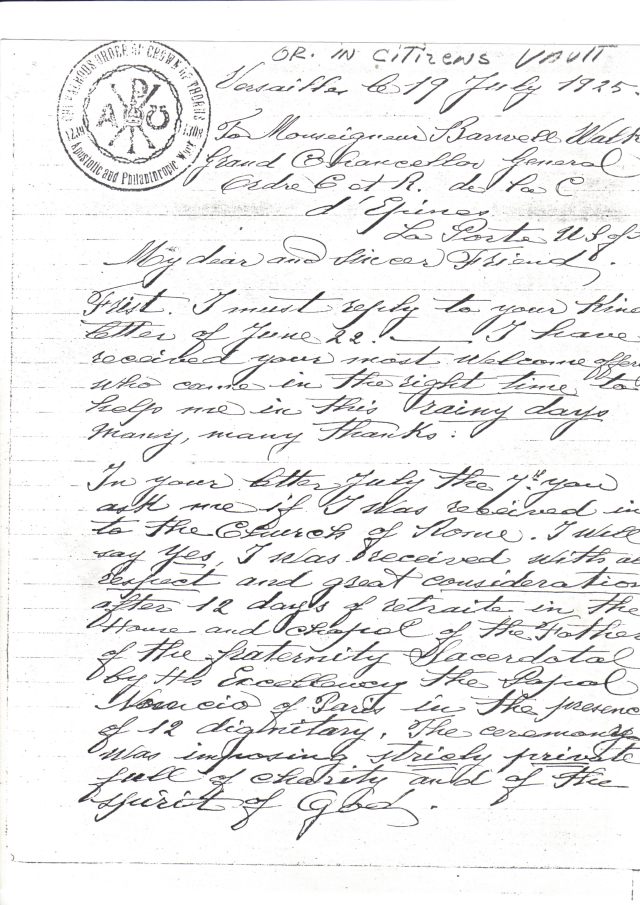 OR. IN CITIZENS VAULT
Versailles le 19 July 1925.
THE VALROOS ORDER OF CROWN OF THORNS
1239 1308
Apostolic and Philanthropic Work
To Monseigneur Barwell Walk
Grand Chancellor General
Ordre C et R. de la C
d'Epines
La Porte U S of
My dear and sincer Friend,
Frist. I must reply to your Kind
letter of June 22. I have
received your most welcome offer
who came in the right time to
help me in this rainy days
many, many thanks:
In your letter July the 7th you
ask me if I was received in
to the Church of Rome. I will
say Yes, I was received with a
respect and great consideration
after 12 days of retraite in the
House and chapel of the Father
of the fraternity Sacerdotal
by His Excellency the Papal
Nuncio of Paris in the presenc
of 12 dignitary. The ceremony
was imposing stricly private
full of charity and of the
spirit of God.